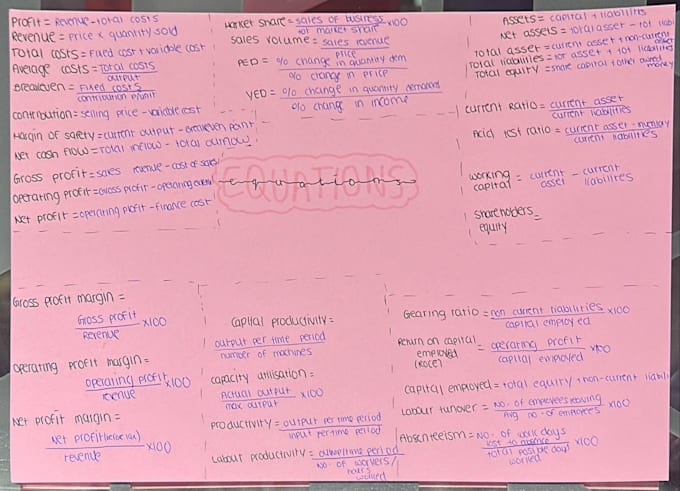 Profit = Revenue - total costs
Revenue = Price x quantity sold
Total costs = Fixed cost + variable cost
Average costs = Total costs
output
Breakeven = Fixed costs
contribution p/unit
contribution = selling price - variable cost
Margin of safety = current output - breakeven point
Net cash flow = Total inflow - total outflow
Gross profit = sales revenue - cost of sales
Operating profit = Gross profit - operating
Net profit = operating profit - finance cost
Market share = sales of business x100
tot market share
sales volume = sales revenue
price
PED = % change in quantity dem
% change in price
YED = % change in quantity demanded
% change in income
EQUATIONS
equations
Assets = capital + liabilities
Net assets = total asset - tot liab
total asset = current asset + non-current asset
Total liabilities = tot asset + tot liabilities
Total equity = share capital + other owned money
current ratio = current asset
current liabilities
Acid test ratio = current asset -
current liabilities
working capital = current asset - current liabilites
shareholders equity =
Gross profit margin =
Gross profit x100
Revenue
Operating profit margin =
operating profit x100
revenue
Net profit margin =
Net profit (before tax) x100
revenue
Capital productivity =
output per time period
number of machines
capacity utilisation =
Actual output x100
max output
Productivity = output per time period
input per time period
Labour productivity = output/time period
No. of workers/
hours
worked
Gearing ratio = non current liabilities x100
capital employed
Return on capital employed (ROCE) = operating profit x100
capital employed
capital employed = total equity + non-current liabili
Labour turnover = No. of employees leaving x100
Avg no. of employees
Absenteeism = No. of work days
lost to absence x100
total possible days
worked